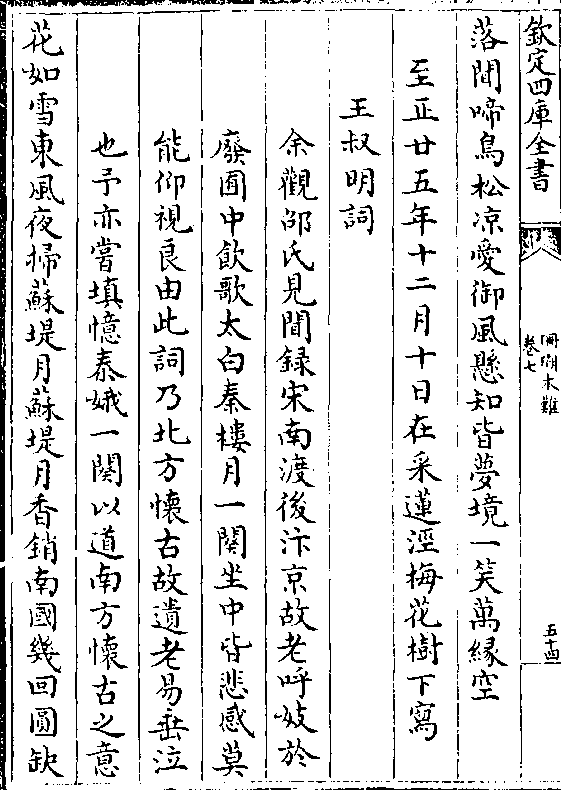 欽定四庫全書
珊瑚木難
卷七
五十四
落間啼鳥松凉愛御風懸知皆夢境一笑萬緣空
至正廿五年十二月十日在采蓮涇梅花樹下寫
王叔明詞
余觀邵氏見聞録宋南渡後汴京故老呼妓於
廢圃中飲歌太白秦樓月一闋坐中皆悲感莫
能仰視良由此詞乃北方懷古故遺老易垂泣
也予亦嘗填憶秦娥一闋以道南方懷古之意
花如雪東風夜掃蘇堤月蘇堤月香銷南國幾回圓缺